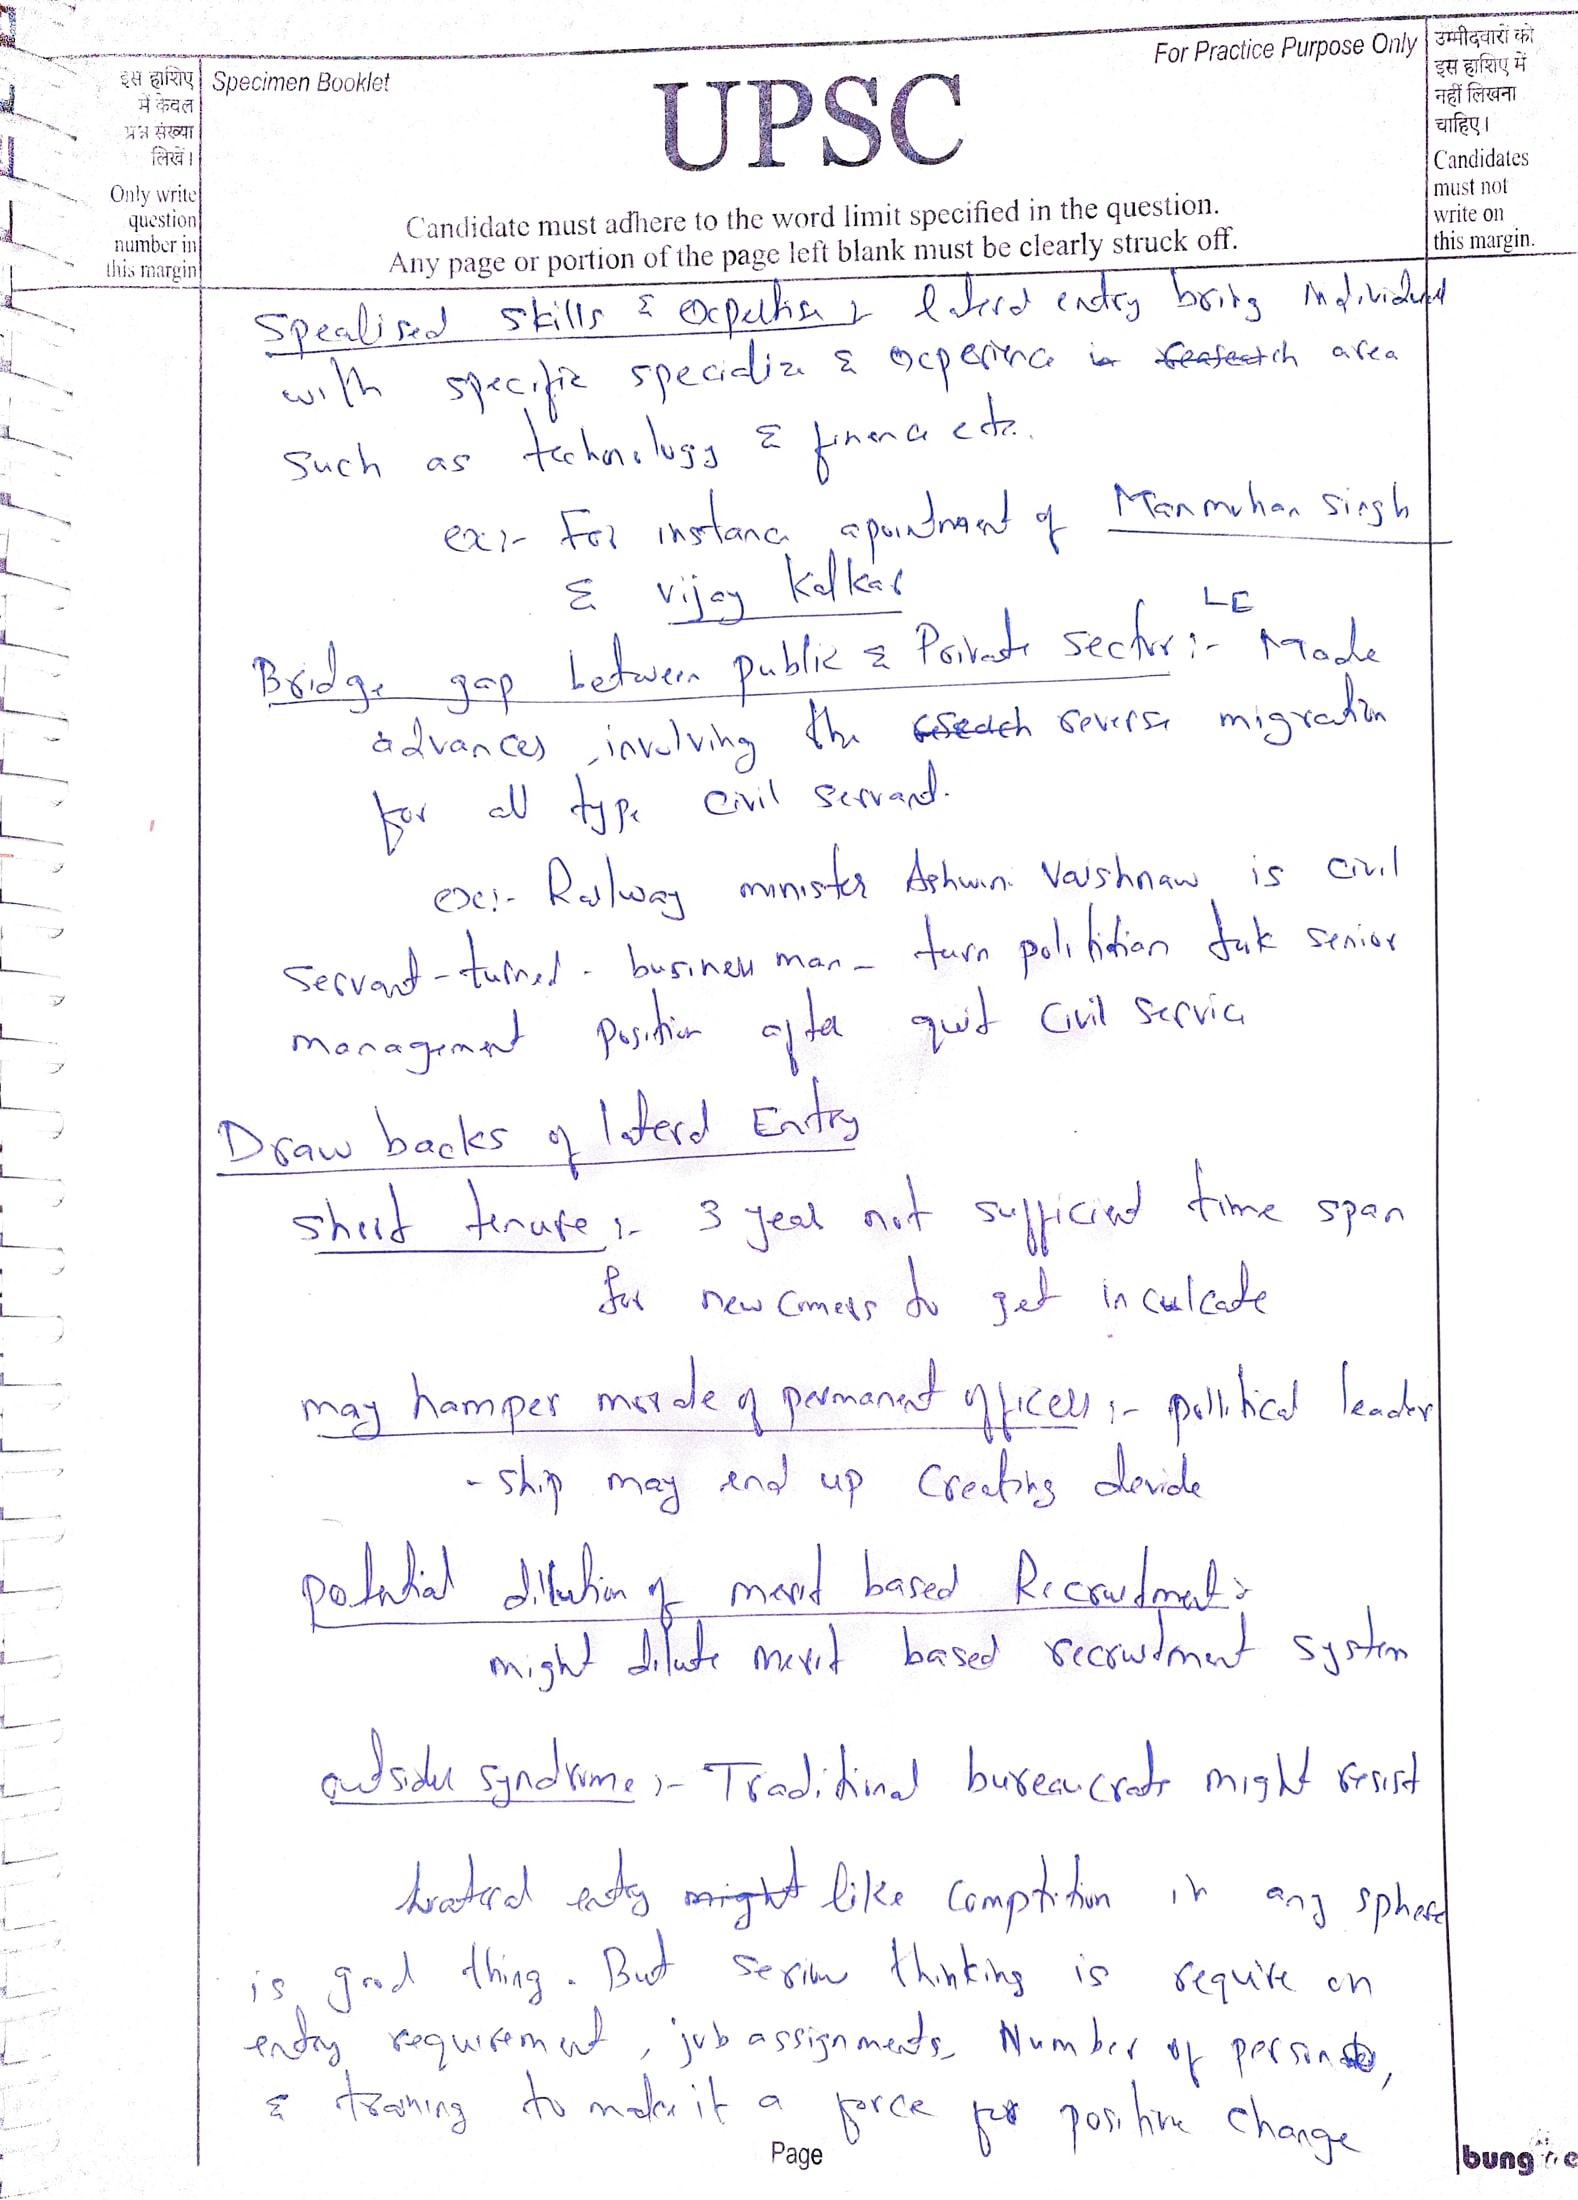 For Practice Purpose Only
इस हाशिए
में केवल
प्रश्न संख्या
लिखें।
Only write
question
number in
this margin
Specimen Booklet
UPSC
Candidate must adhere to the word limit specified in the question.
Any page or portion of the page left blank must be clearly struck off.
उम्मीदवारों को
इस हाशिए में
नहीं लिखना
चाहिए।
Candidates
must not
write on
this margin.
Spealised skills & Expertise :- laterd entry bring individual
with specific specializ & experience in area
such as technology & finance etc.
ex:- For instanc apointment of Manmohan Singh
& vijay Kalkar
LE
Bridge gap between public & Private sector :- Made
advances involving the reverse migration
for all type civil servant.
ex:- Railway minister Ashwini Vaishnaw is civil
servant-turned-business man- turn politician tuk senior
management position after quit Civil Servic
Draw backs of laterd Entry
Short tenure :- 3 year not sufficient time span
for new comers to get inculcate
may hamper morale of permanent officers :- political leader
-ship may end up creating devide
potential dilution of merit based Recruitment :-
might dilute merit based recruitment system
outsider syndrome :- Traditional bureaucrats might resist
Lateral entry might like comptition in any sphere
is good thing. But serious thinking is require on
entry requirement, job assignments, Number of person,
& training to make it a force for positive change
Page